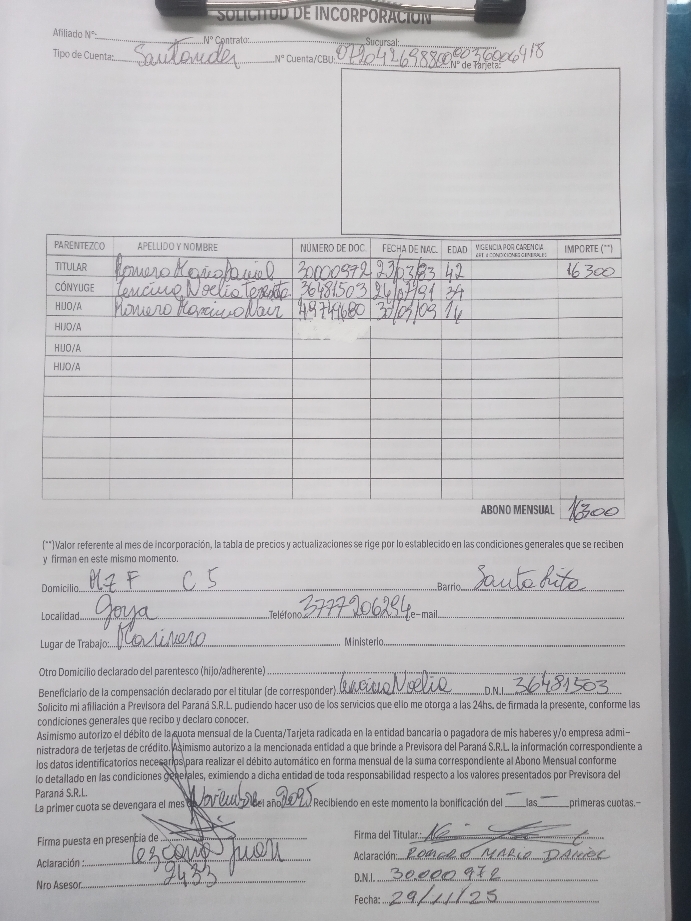 SOLICITUD DE INCORPORACIÓN
Afiliado Nº: Nº Contrato: Sucursal:
Tipo de Cuenta: Santander Nº Cuenta/CBU: Nº de Tarjeta:
PARENTEZCO APELLIDO Y NOMBRE NÚMERO DE DOC. FECHA DE NAC. EDAD VIGENCIA POR CARENCIA ART. 4 CONDICIONES GENERALES IMPORTE (**)
TITULAR Romero Mario Daniel 30000972 23/03/83 42 16300
CÓNYUGE Lencina Noelia Teresita 36481503 26/07/91 34
HIJO/A Romero 49749680
HIJO/A
HIJO/A
HIJO/A
ABONO MENSUAL 16300
(**)Valor referente al mes de incorporación, la tabla de precios y actualizaciones se rige por lo establecido en las condiciones generales que se reciben
y firman en este mismo momento.
Domicilio Mz F C 5 Barrio Santa Rita
Localidad Goya Teléfono 3777206294 e-mail
Lugar de Trabajo: Marinero Ministerio
Otro Domicilio declarado del parentesco (hijo/adherente)
Beneficiario de la compensación declarado por el titular (de corresponder) Lencina Noelia D.N.I. 36481503
Solicito mi afiliación a Previsora del Paraná S.R.L. pudiendo hacer uso de los servicios que ello me otorga a las 24hs. de firmada la presente, conforme las
condiciones generales que recibo y declaro conocer.
Asimismo autorizo el débito de la cuota mensual de la Cuenta/Tarjeta radicada en la entidad bancaria o pagadora de mis haberes y/o empresa admi-
nistradora de terjetas de crédito. Asimismo autorizo a la mencionada entidad a que brinde a Previsora del Paraná S.R.L. la información correspondiente a
los datos identificatorios necesarios para realizar el débito automático en forma mensual de la suma correspondiente al Abono Mensual conforme
lo detallado en las condiciones generales, eximiendo a dicha entidad de toda responsabilidad respecto a los valores presentados por Previsora del
Paraná S.R.L.
La primer cuota se devengara el mes Noviembre del año 2025 Recibiendo en este momento la bonificación del — las — primeras cuotas.-
Firma puesta en presencia de Firma del Titular:
Aclaración: Lezcano Juan Aclaración: ROMERO MARIO DANIEL
Nro Asesor 9433 D.N.I. 30000972
Fecha: 29/11/25